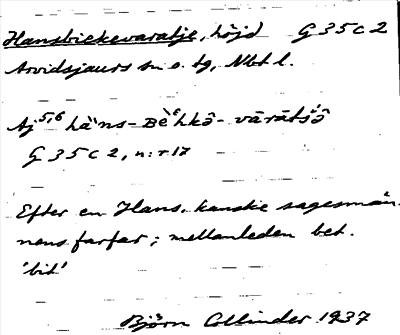 Hansbiekevaratje, höjd G 35 c 2
Arvidsjaurs sn o. tg, Nbt l.
Aj 5,6 hà'ns-Bèᵉhkô-vāràtśô
G 35 C 2, n:r 17
Efter en Hans, kanske sagesman-
nens farfar; mellanleden bet.
'bit'
Björn Collinder 1937